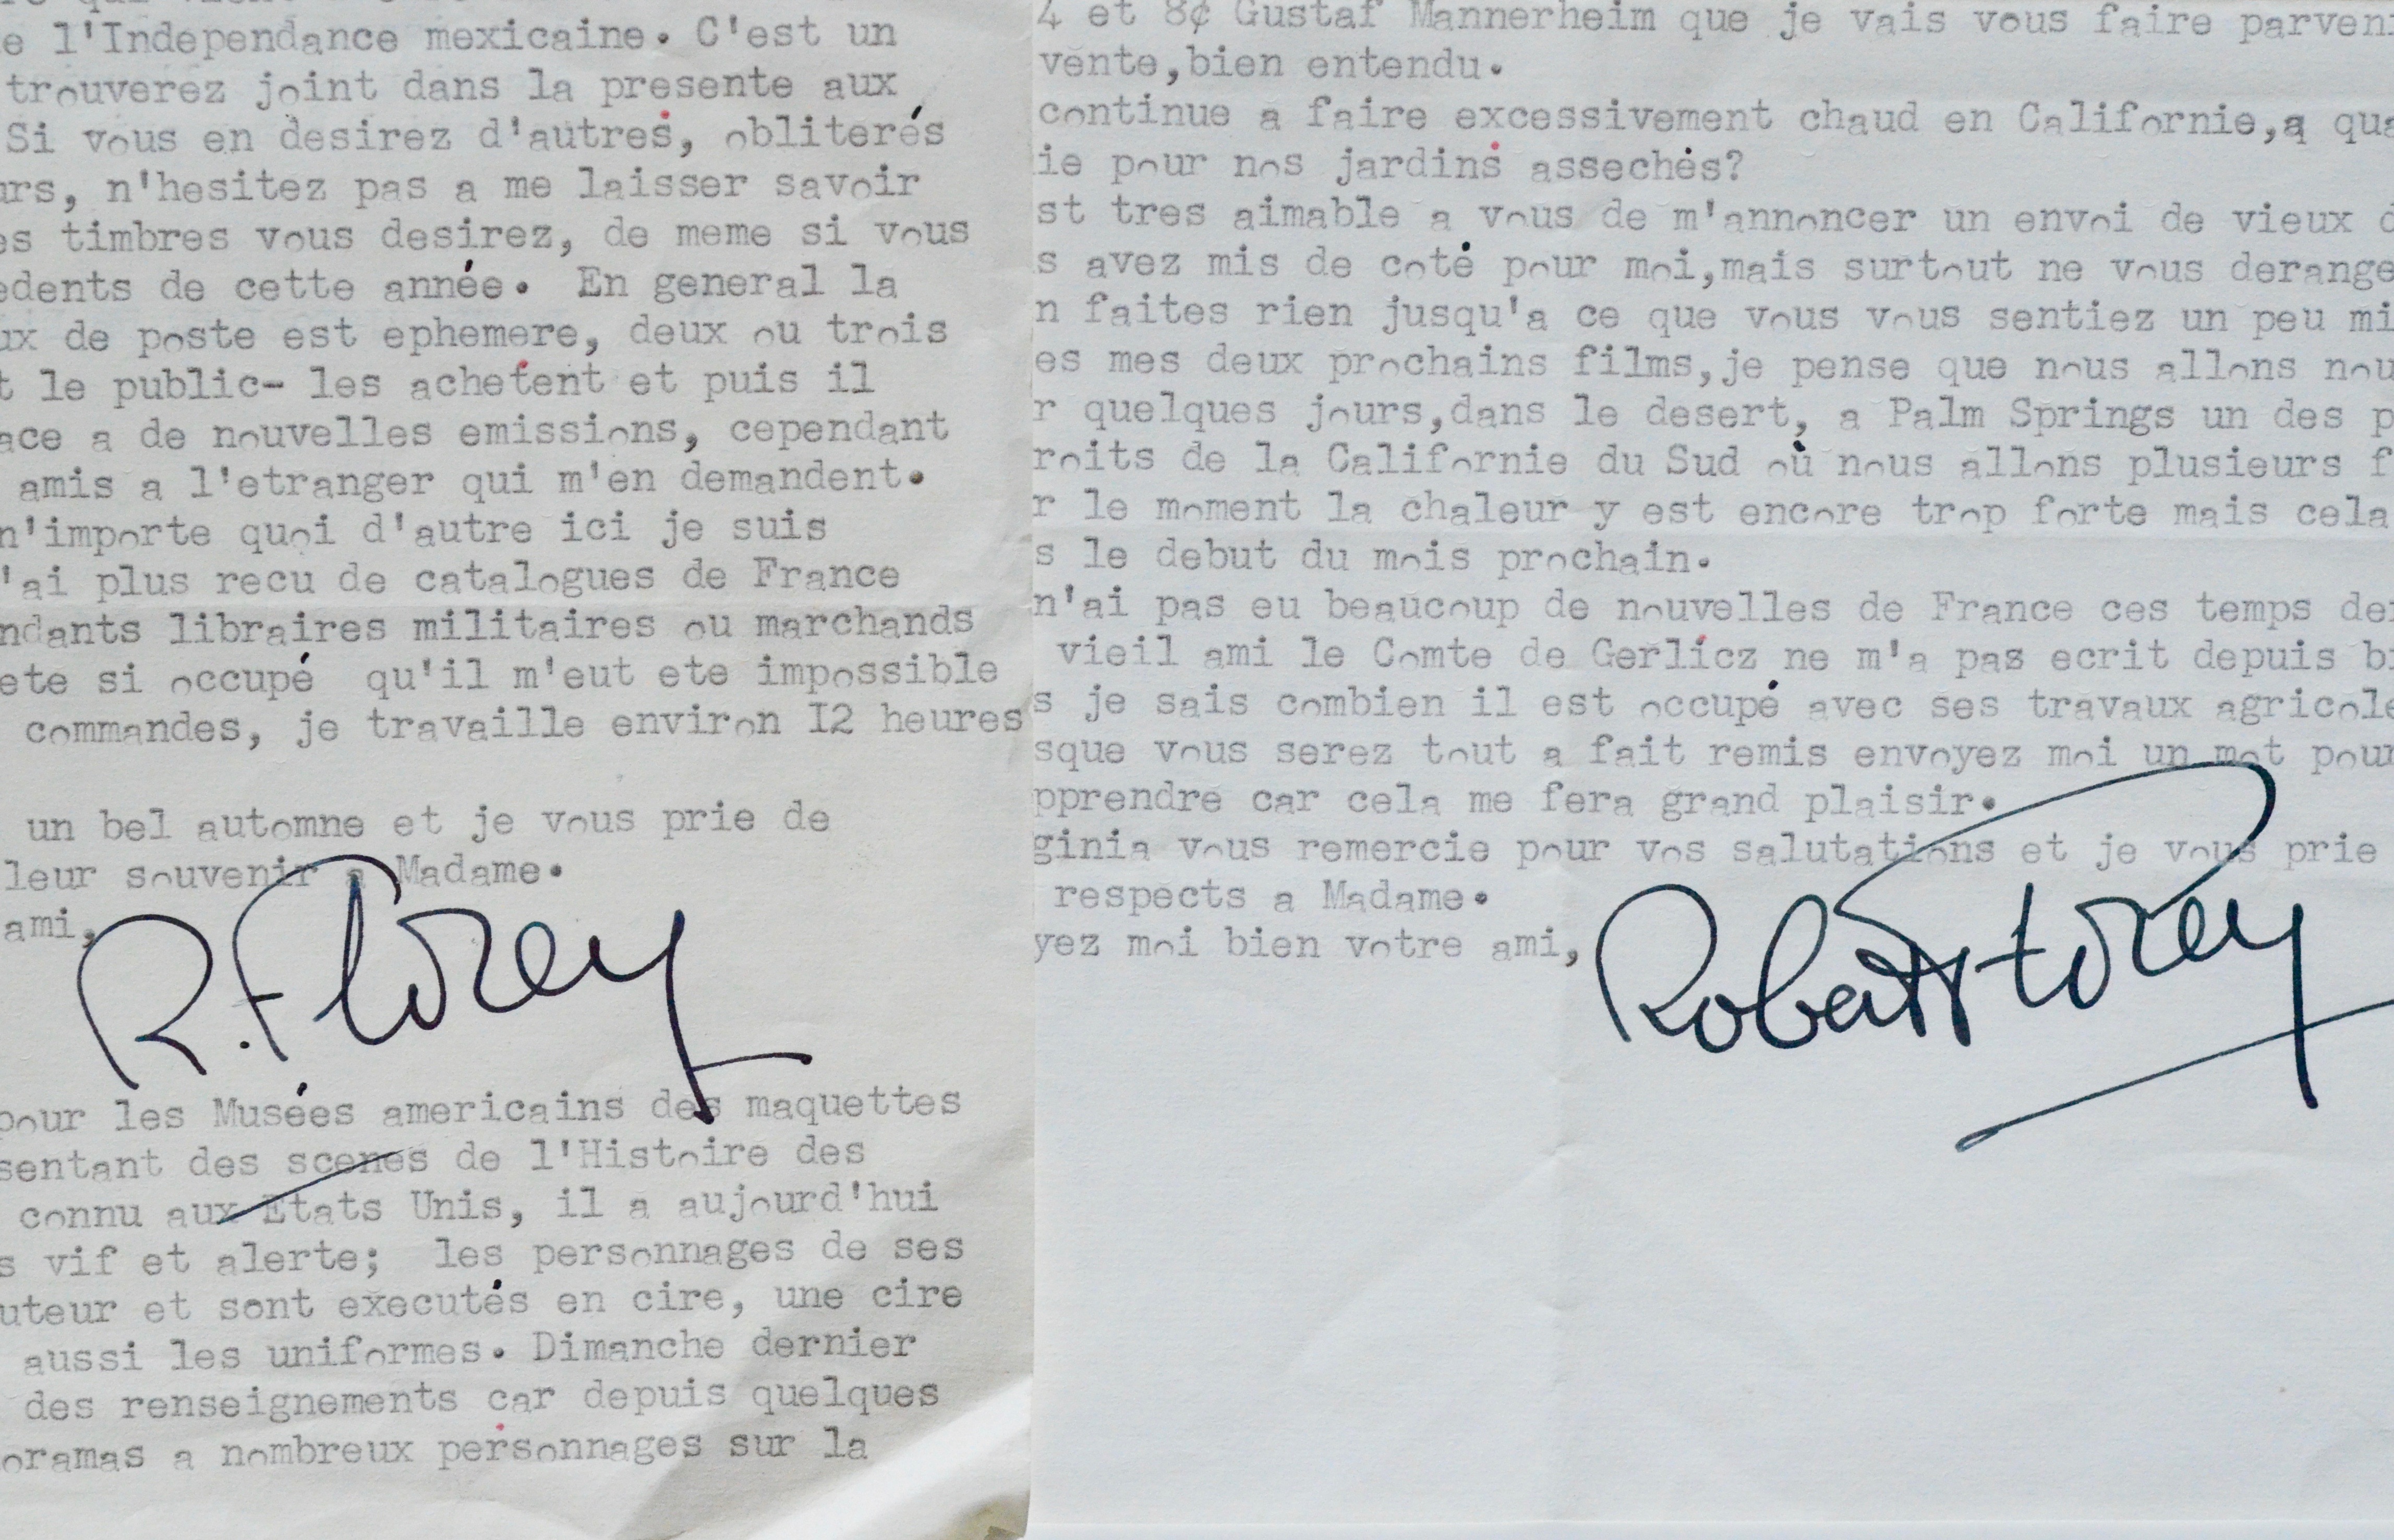 e l'Independance mexicaine. C'est un
trouverez joint dans la presente aux
Si vous en desirez d'autres, obliterés
urs, n'hesitez pas a me laisser savoir
es timbres vous desirez, de meme si vous
edents de cette année. En general la
ux de poste est ephemere, deux ou trois
t le public- les achetent et puis il
ace a de nouvelles emissions, cependant
amis a l'etranger qui m'en demandent.
n'importe quoi d'autre ici je suis
'ai plus recu de catalogues de France
ndants libraires militaires ou marchands
ete si occupé qu'il m'eut ete impossible
commandes, je travaille environ I2 heures
un bel automne et je vous prie de
leur souvenir a Madame.
ami,
R. Florey
pour les Musées americains des maquettes
sentant des scenes de l'Histoire des
connu aux Etats Unis, il a aujourd'hui
s vif et alerte; les personnages de ses
uteur et sont executés en cire, une cire
aussi les uniformes. Dimanche dernier
des renseignements car depuis quelques
oramas a nombreux personnages sur la
4 et 8¢ Gustaf Mannerheim que je vais vous faire parveni
vente,bien entendu.
continue a faire excessivement chaud en Californie,a qua
ie pour nos jardins assechés?
st tres aimable a vous de m'annoncer un envoi de vieux d
s avez mis de coté pour moi,mais surtout ne vous derange
n faites rien jusqu'a ce que vous vous sentiez un peu mi
es mes deux prochains films,je pense que nous allons nou
r quelques jours,dans le desert, a Palm Springs un des p
roits de la Californie du Sud où nous allons plusieurs f
r le moment la chaleur y est encore trop forte mais cela
s le debut du mois prochain.
n'ai pas eu beaucoup de nouvelles de France ces temps der
vieil ami le Comte de Gerlicz ne m'a pas ecrit depuis bi
s je sais combien il est occupé avec ses travaux agricole
sque vous serez tout a fait remis envoyez moi un mot pour
pprendre car cela me fera grand plaisir.
ginia vous remercie pour vos salutations et je vous prie
respects a Madame.
yez moi bien votre ami,
Robert Florey